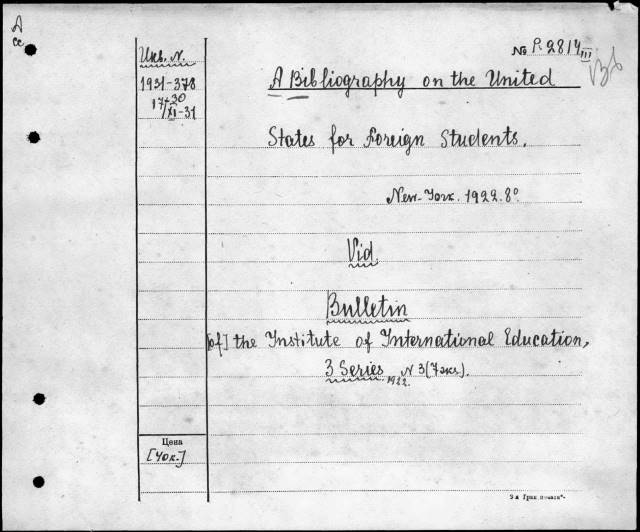 A
ce
Инв. N.
1931-378
17-30
/XI-31
No P.2814 III
A Bibliography on the United
States for Foreign Students.
New-York. 1922. 8°
Vid.
Bulletin
[of] the Institute of International Education,
3 Series N 3 (7 экз.).
1922.
Цена
[40к.]